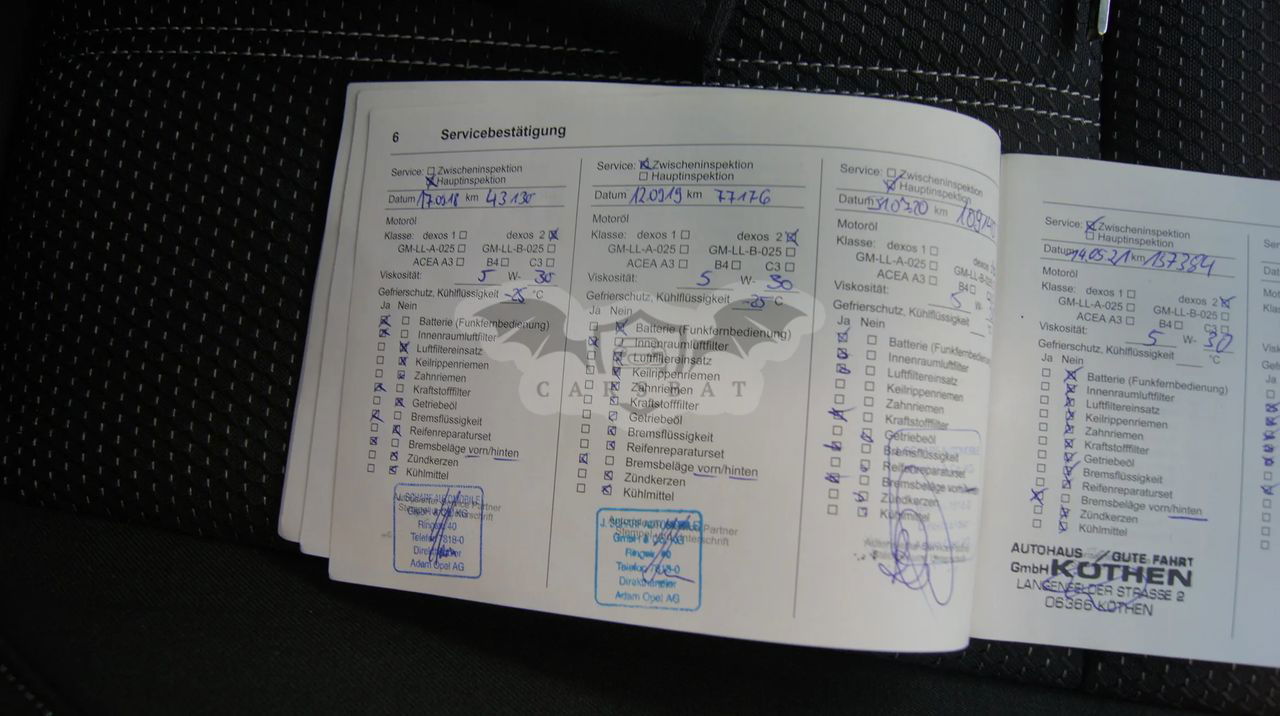 6 Servicebestätigung
Service: Zwischeninspektion
Hauptinspektion
Datum 17.09.18 km 43130
Motoröl
Klasse: dexos 1 dexos 2
GM-LL-A-025 GM-LL-B-025
ACEA A3 B4 C3
Viskosität: 5 W- 30
Gefrierschutz, Kühlflüssigkeit -25 °C
Ja Nein
Batterie (Funkfernbedienung)
Innenraumluftfilter
Luftfiltereinsatz
Keilrippenriemen
Zahnriemen
Kraftstofffilter
Getriebeöl
Bremsflüssigkeit
Reifenreparaturset
Bremsbeläge vorn/hinten
Zündkerzen
Kühlmittel
Ringstr. 40
Telefon 7818-0
Direkthändler
Adam Opel AG
Service: Zwischeninspektion
Hauptinspektion
Datum 12.09.19 km 77176
Motoröl
Klasse: dexos 1 dexos 2
GM-LL-A-025 GM-LL-B-025
ACEA A3 B4 C3
Viskosität: 5 W- 30
Gefrierschutz, Kühlflüssigkeit -25 °C
Ja Nein
Batterie (Funkfernbedienung)
Innenraumluftfilter
Luftfiltereinsatz
Keilrippenriemen
Zahnriemen
Kraftstofffilter
Getriebeöl
Bremsflüssigkeit
Reifenreparaturset
Bremsbeläge vorn/hinten
Zündkerzen
Kühlmittel
Direkthändler
Adam Opel AG
Service: Zwischeninspektion
Hauptinspektion
Datum km
Motoröl
Klasse: dexos 1
GM-LL-A-025
ACEA A3 B4
Viskosität: 5 W-
Gefrierschutz, Kühlflüssigkeit
Ja Nein
Batterie (Funkfernbedienung
Innenraumluftfilter
Luftfiltereinsatz
Keilrippenriemen
Zahnriemen
Kraftstofffilter
Getriebeöl
Bremsflüssigkeit
Reifenreparaturset
Bremsbeläge
Zündkerzen
Kühlmittel
Service: Zwischeninspektion
Hauptinspektion
Datum 14.05.21 km 137384
Motoröl
Klasse: dexos 1 dexos 2
GM-LL-A-025 GM-LL-B-025
ACEA A3 B4 C3
Viskosität: 5 W- 30
Gefrierschutz, Kühlflüssigkeit °C
Ja Nein
Batterie (Funkfernbedienung)
Innenraumluftfilter
Luftfiltereinsatz
Keilrippenriemen
Zahnriemen
Kraftstofffilter
Getriebeöl
Bremsflüssigkeit
Reifenreparaturset
Bremsbeläge vorn/hinten
Zündkerzen
Kühlmittel
AUTOHAUS GUTE FAHRT
GmbH KÖTHEN
LANGENFELDER STRASSE 2
06366 KÖTHEN
CARSBAT